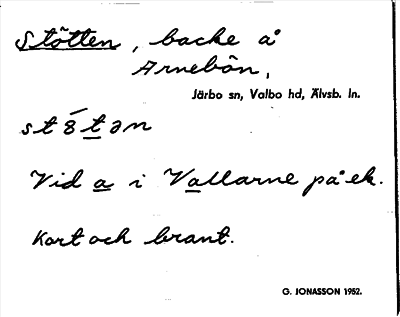 Stötten, backe å
Arnebön,
Järbo sn, Valbo hd, Älvsb. ln.
st8́tən
Vid a i Vallarne på ek.
Kort och brant.
G. JONASSON 1952.